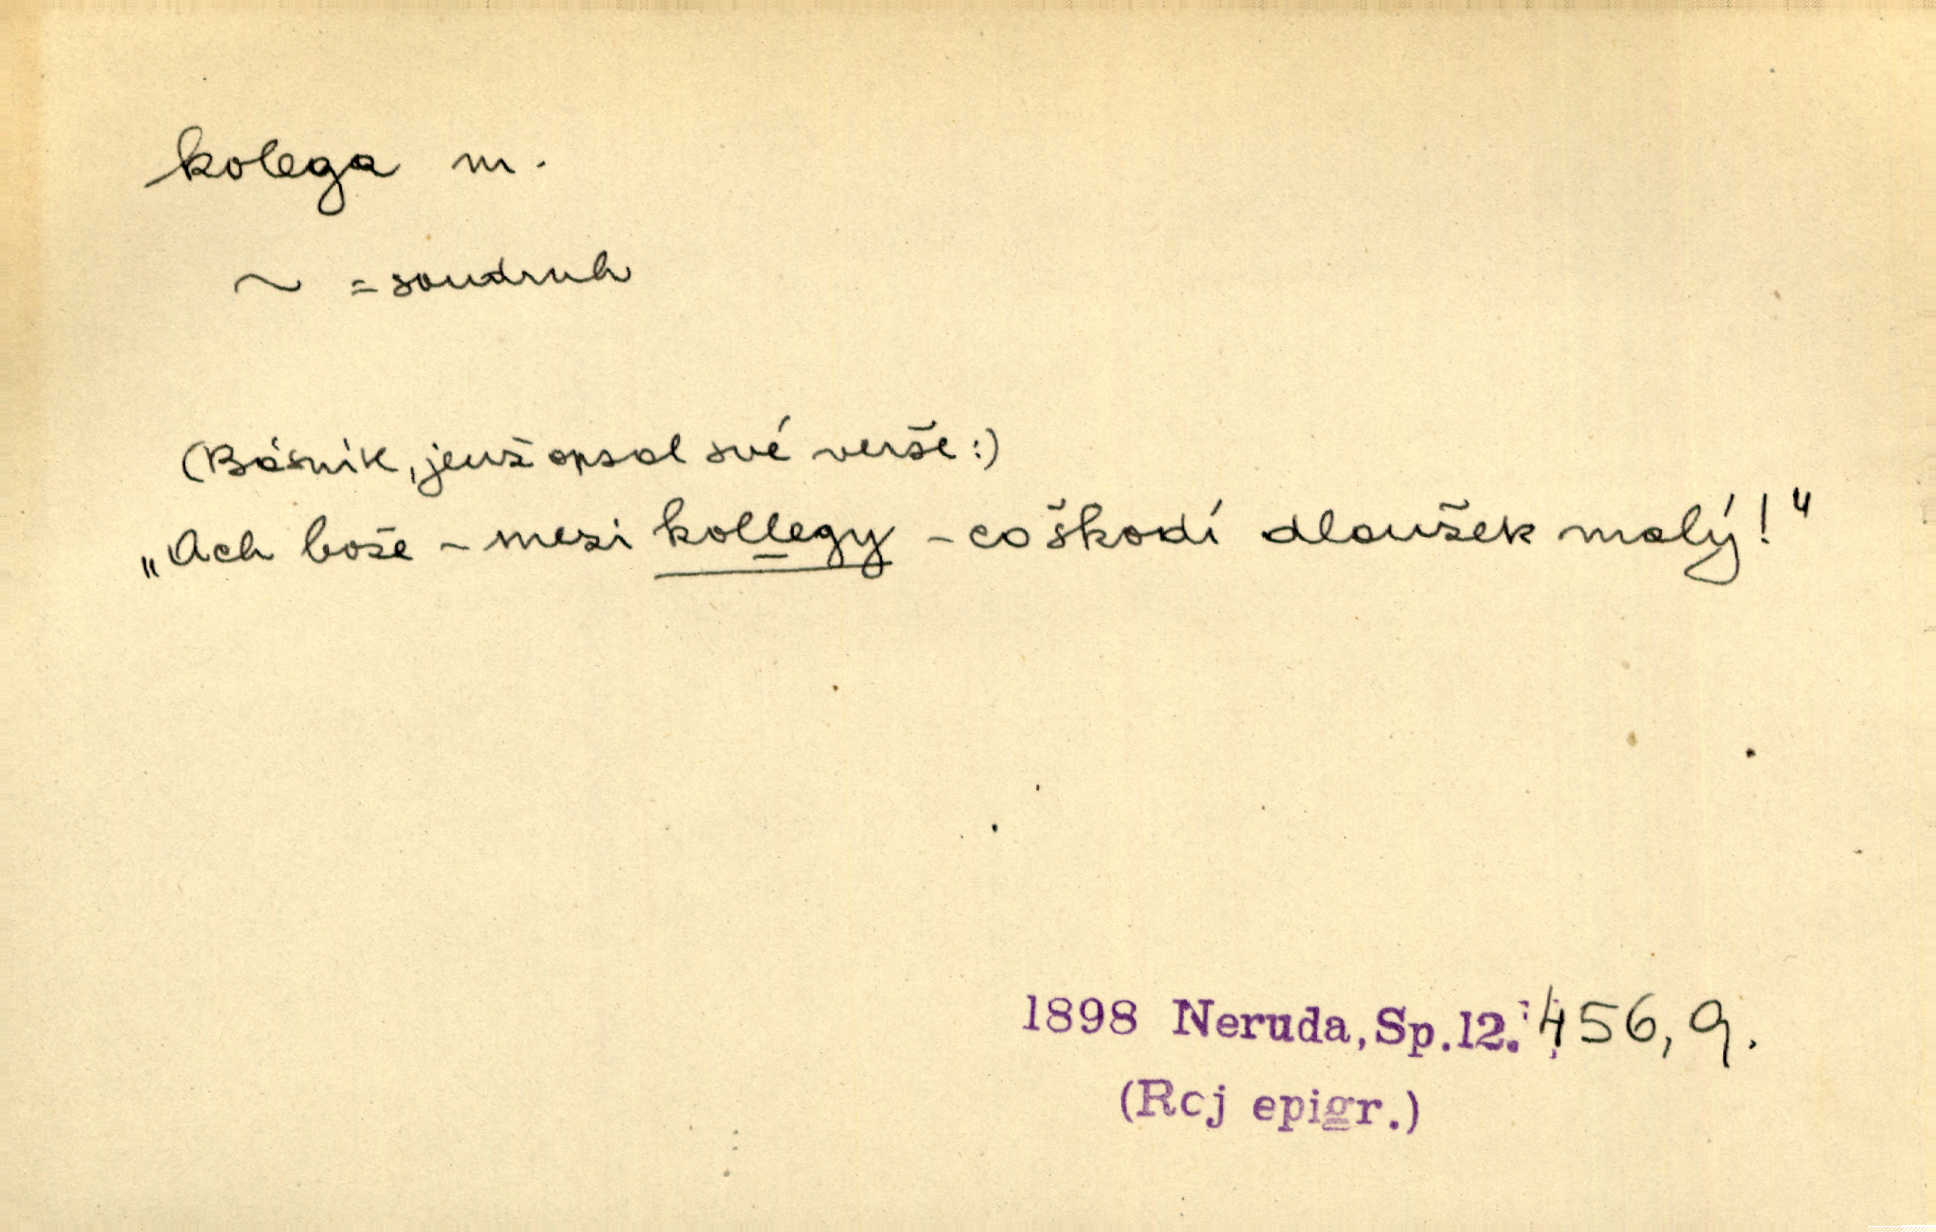 kolega m.
~ = soudruh
(Básník, jenž opsal své verše:)
„Ach bože – mezi kollegy – co škodí dloužek malý!"
1898 Neruda, Sp.12. 456, 9.
(Rcj epigr.)